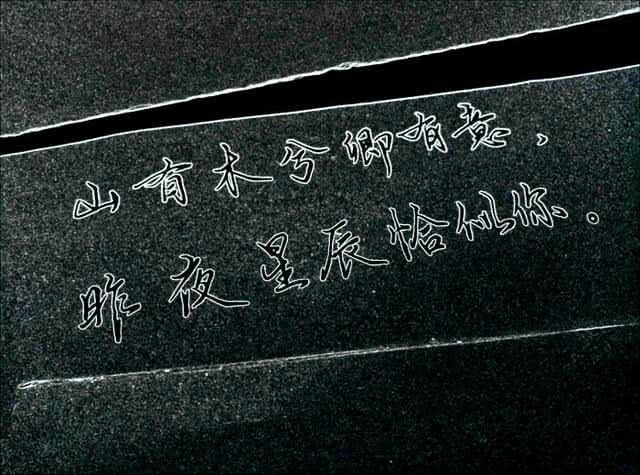 山有木兮卿有意、
昨夜星辰恰似你。